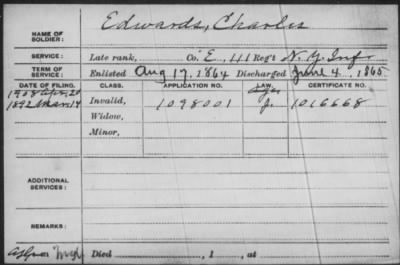 NAME OF SOLDIER: Edwards, Charles
SERVICE: Late rank, Co. E, 111 Reg't N.Y. Inf.
TERM OF SERVICE: Enlisted Aug 17, 1864 Discharged June 4, 1865
DATE OF FILING. CLASS. APPLICATION NO. LAW. CERTIFICATE NO.
1908 Apr. 20 Age
1892 Mar. 14 Invalid, 1098001 J. 1016668
Widow,
Minor,
ADDITIONAL SERVICES:
REMARKS:
Died , 1 , at